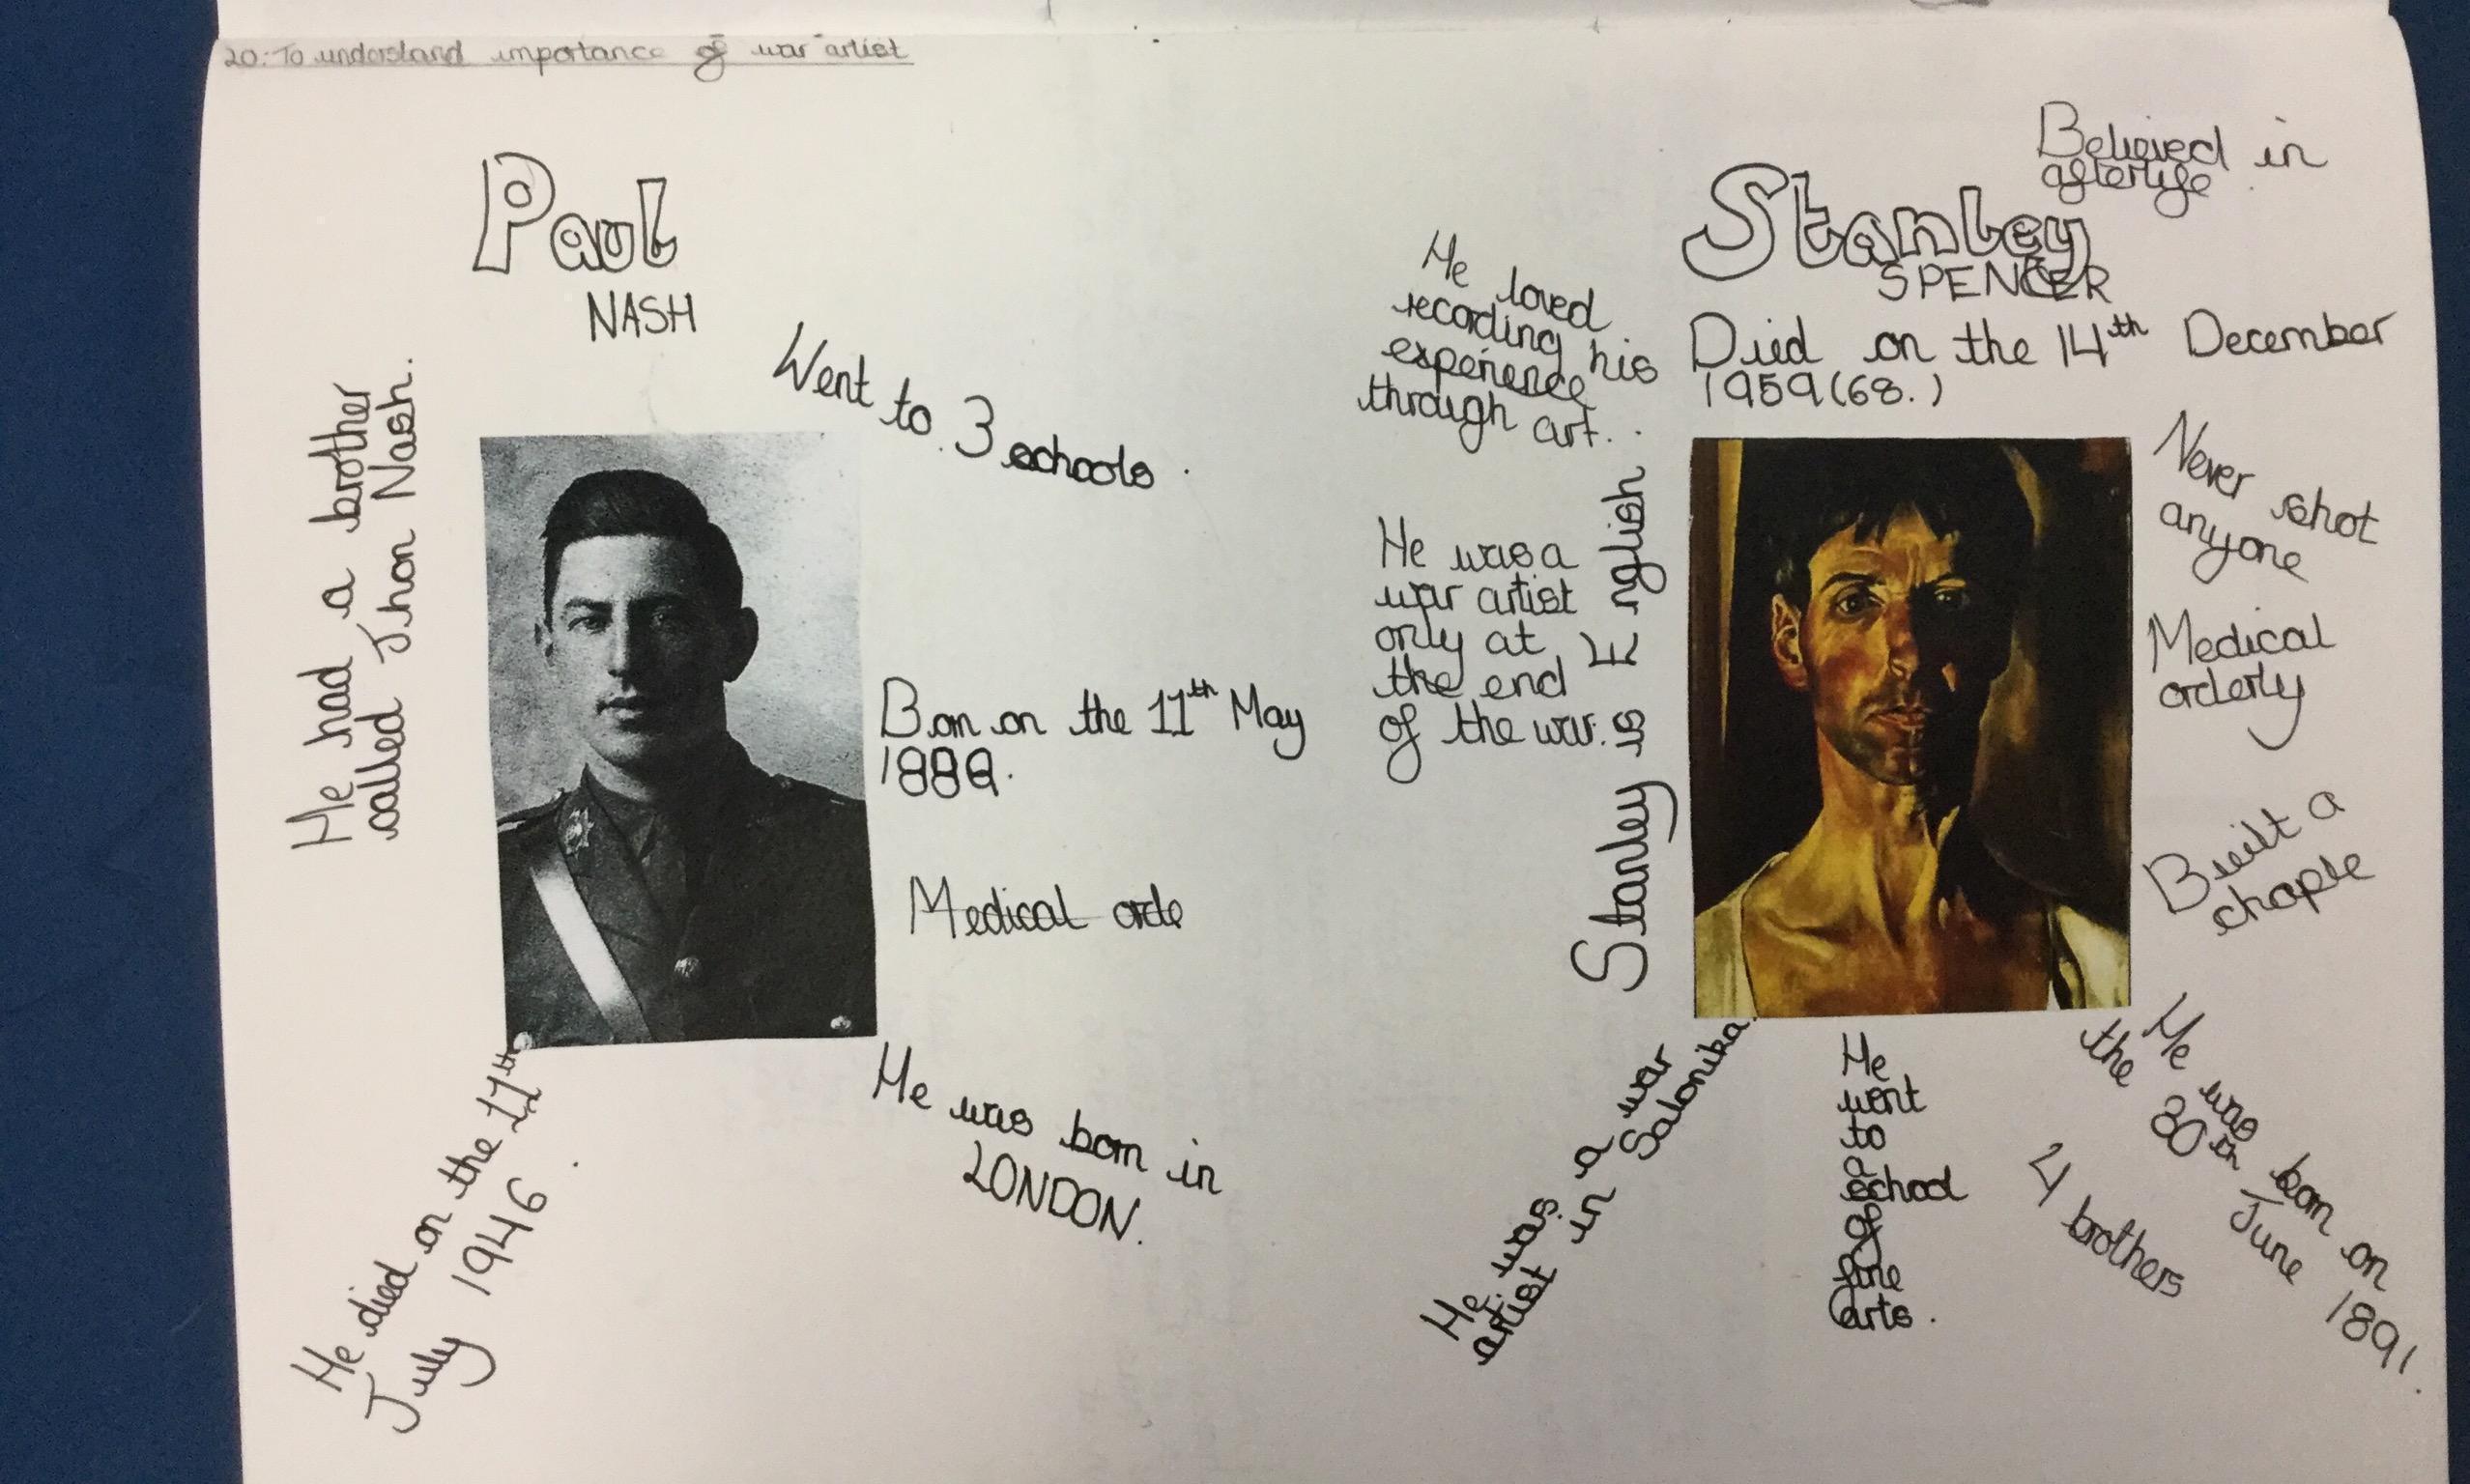 20: To understand importance of war artist
Paul
NASH
He had a brother
called Jhon Nash.
Went to 3 schools.
Born on the 11th May
1889.
Medical orde
He was born in
LONDON.
He died on the 11th
July 1946.
Stanley
SPENCER
Believed in
afterlife
He loved
recording his
experience
through art..
Died on the 14th December
1959 (68.)
Never shot
anyone
He was a
war artist
only at
the end
of the war.
Stanley is English
Medical
orderly
Built a
chaple
He was a war
artist in Salonika.
He
went
to
a
school
of
fine
arts.
He was born on
the 30th June 1891.
4 brothers